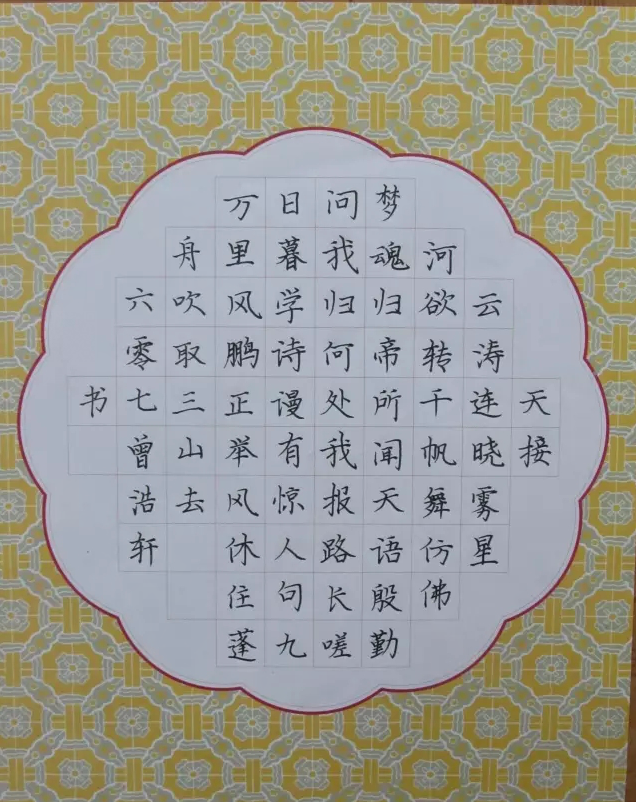 天接
云涛连晓雾星
河欲转千帆舞仿佛
梦魂归帝所闻天语殷勤
问我归何处我报路长嗟
日暮学诗谩有惊人句九
万里风鹏正举风休住蓬
舟吹取三山去
六零七曾浩轩
书